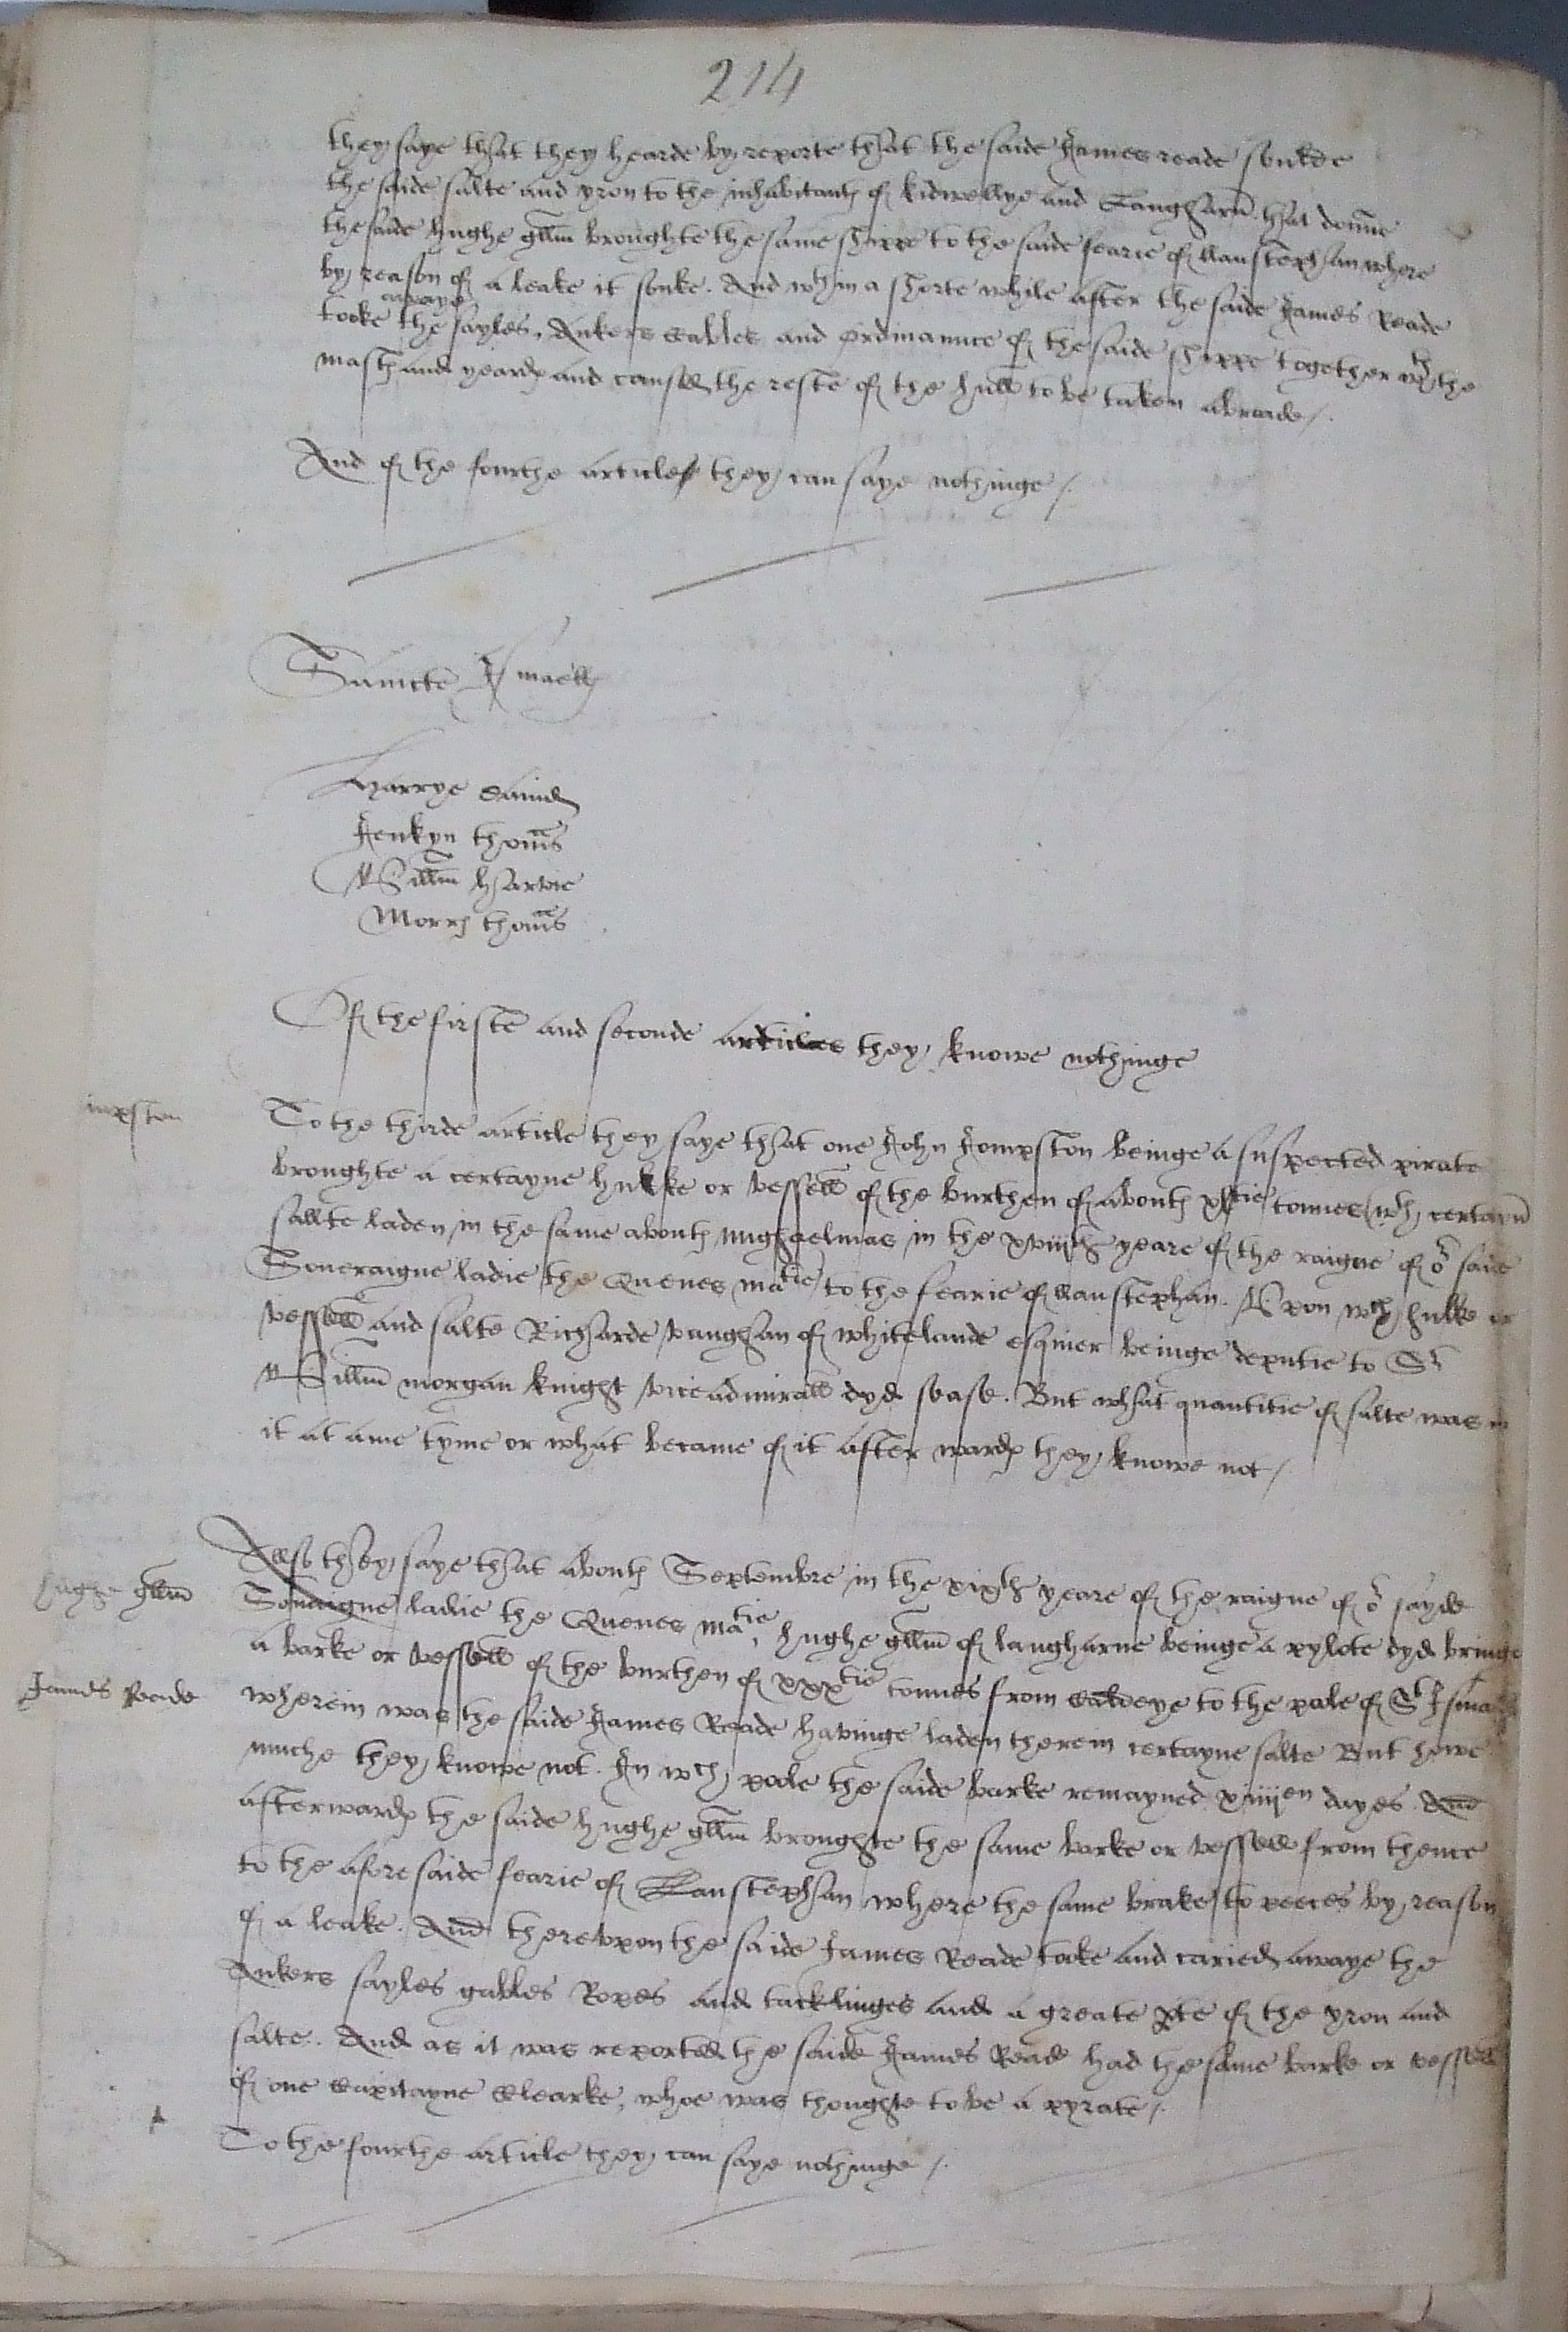 214
they saye that they hearde by reporte that the saide James reade soulde
the saide salte and yron to the inhabitants of kidwellye and Langharn. that donne
the saide hughe gllm broughte the same shippe to the saide fearie of llanstephan where
by reason of a leake it sonke. And wthin a shorte while after the saide James Reade
awaye
tooke the sayles, Ankers cables and ordinaunce of the saide shippe together wth the
masts and yeards and caused the reste of the hull to be taken abroade /.
And of the fourthe article they can saye nothinge /.
Saincte Ismaells
Harrye David
Jenkyn thomas
Willm harvie
Morris thomas
Of the firste and seconde articles they knowe nothinge
To the thirde article they saye that one John Jompston beinge a suspected pirate
broughte a certayne hulke or vessell of the burthen of aboute xltie tonnes wth certayn
sallte laden in the same aboute mighaelmas in the xviijth yeare of the raigne of or saide
Soueraigne ladie the Quenes matie to the fearie of llanstephan. Vpon wch hulke or
vessell and salte Richarde vaughan of whitelande esquier beinge deputie to Sr
Willm morgan knight vice admirall dyd sease. But what quantitie of salte was in
it at anie tyme or what became of it after wards they knowe not /
Also they saye that aboute Septembre in the xixth yeare of the raigne of or sayde
hughe gllm
Soueraigne ladie the Quenes matie, hughe gllm of langharne beinge a pylote dyd bringe
a barke or vessell of the burthen of xxxtie tonnes from Caldeye to the pole of St Ismaells
James Reade
wherein was the saide James Reade havinge laden therein certayne salte But howe
muche they knowe not. In wch poole the saide barke remayned xiiijen dayes. And
afterwards the saide hughe gllm broughte the same barke or vessell from thence
to the aforesaide fearie of Llanstephan where the same brake to peeces by reason
of a leake. And therevpon the saide James Reade tooke and caried awaye the
Ankers sayles gables Ropes and tacklinges and a greate pte of the yron and
salte. And as it was reported the saide James Reade had the same barke or vessell
of one Capitayne Clearke, whoe was thoughte to be a pyrate /.
To the fourthe article they can saye nothinge /.